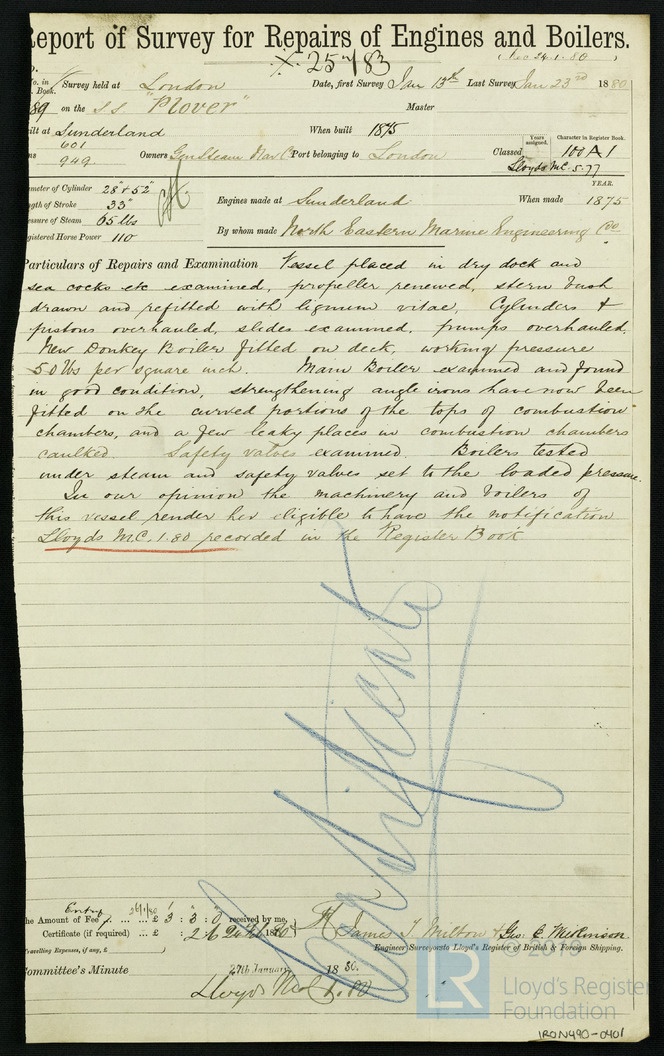 Report of Survey for Repairs of Engines and Boilers.
25 83 (Rec 24.1.80)
No. in Survey held at London Date, first Survey Jan 13th Last Survey Jan 23rd 1880
Book.
89 on the S.S "Plover" Master
Built at Sunderland When built 1875
601
949 Owners Gen Steam Nav Co Port belonging to London
Years assigned. Character in Register Book.
Classed 100A1
Lloyds MC. 5.77
Diameter of Cylinder 28" & 52"
Length of Stroke 33"
Pressure of Steam 65 lbs
Registered Horse Power 110
YEAR.
Engines made at Sunderland When made 1875
By whom made North Eastern Marine Engineering Co
Particulars of Repairs and Examination Vessel placed in dry dock and
sea cocks etc examined, propeller renewed, stern bush
drawn and refitted with lignum vitae, Cylinders &
pistons overhauled, slides examined, pumps overhauled.
New Donkey Boiler fitted on deck, working pressure
50 lbs per square inch. Main Boiler examined and found
in good condition, strengthening angle irons have now been
fitted on the curved portions of the tops of combustion
chambers, and a few leaky places in combustion chambers
caulked. Safety valves examined. Boilers tested
under steam and safety valves set to the loaded pressure.
In our opinion the machinery and boilers of
this vessel render her eligible to have the notification
Lloyds MC. 1.80 recorded in the Register Book
Entry 26/1/80
The Amount of Fee ... ... £ 3 : 3 : 0 received by me,
Certificate (if required) ... £ : 26 1880
Travelling Expenses, if any, £
James T Milton & Geo. E.
Engineer Surveyors to Lloyd's Register of British & Foreign Shipping.
Committee's Minute 27th January 1880.
Lloyds MC 1.80
© 201
LR
Lloyd's Register
Foundation
IRON490-0401